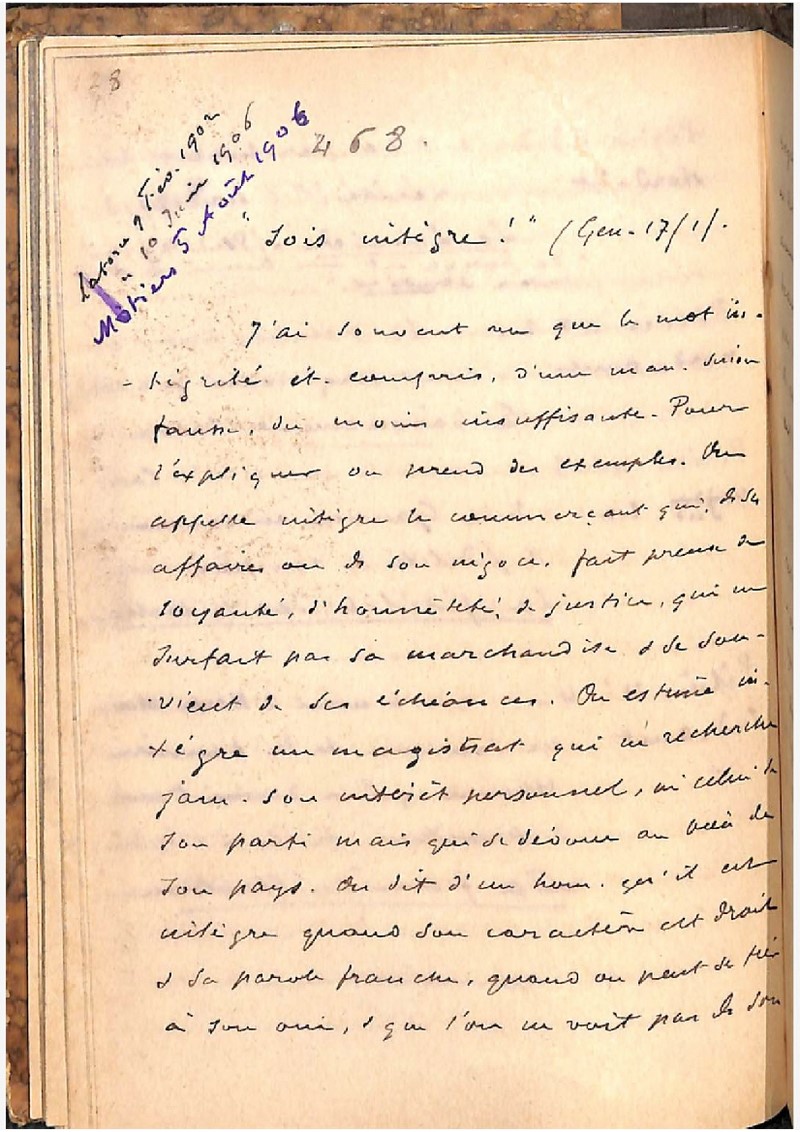 28
468.
9 Fév. 1902
" 10 Juin 1906
Môtiers 5 Août 1906
"Sois intègre!" (Gen. 17/1).
J'ai souvent vu que le mot in-
tégrité ét. compris, d'une man. sinon
fausse, du moins insuffisante. Pour
l'expliquer on prend des exemples. On
appelle intègre le commerçant qui, ds ses
affaires ou ds son négoce, fait preuve de
loyauté, d'honnêteté, de justice, qui ne
surfait pas sa marchandise & se sou-
vient de ses échéances. On estime in-
tègre un magistrat qui ne recherche
jam. son intérêt personnel, ni celui de
son parti mais qui se dévoue au bien de
son pays. On dit d'un hom. qu'il est
intègre quand son caractère est droit
& sa parole franche, quand on peut se fier
à son oui, & que l'on ne voit pas ds son